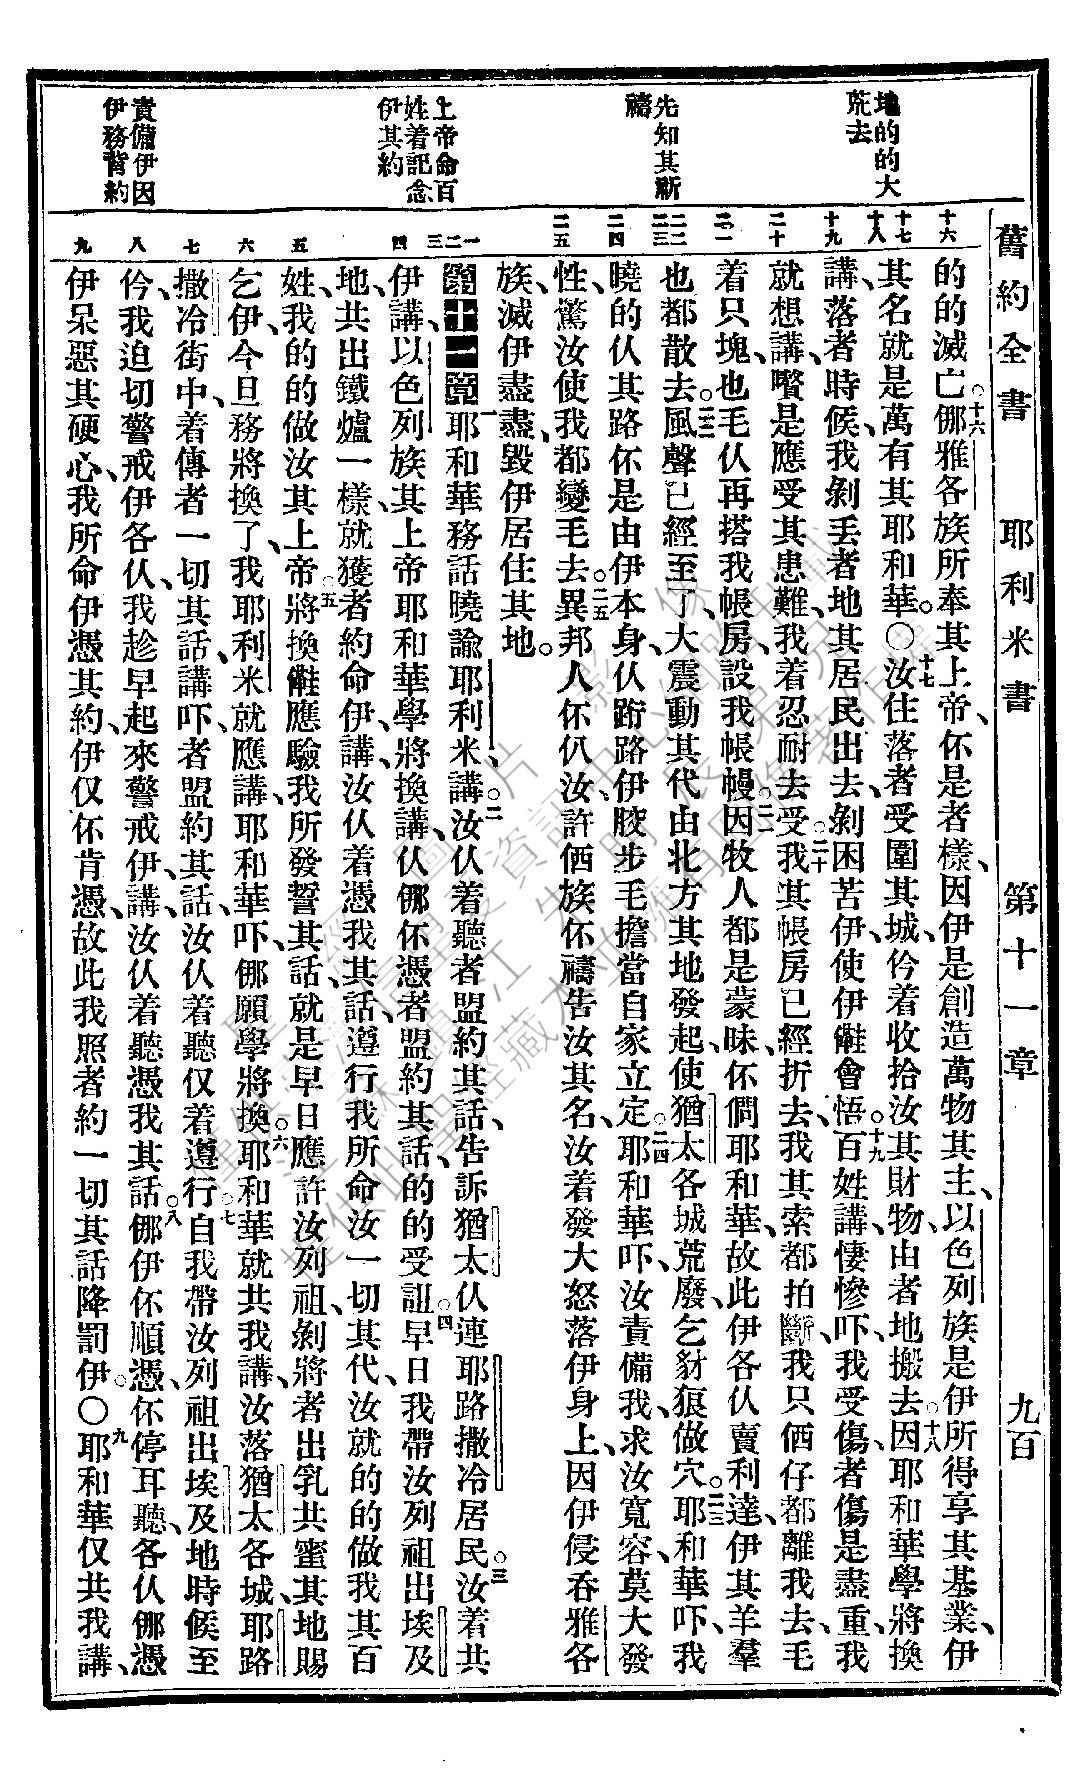 舊約全書 耶利米書 第十一章 九百
地的的大
荒去
先知其禱
上帝命百
姓着記念
伊其約
責備伊因
伊務背約
十六
十七
十八
十九
二十
二一
二二
二三
二四
二五
一
二
三
四
五
六
七
八
九
的的滅亡㑚雅各族所奉其上帝、伓是者樣、因伊是創造萬物其主、以色列族是伊所得享其基業、伊
其名就是萬有其耶和華。〇汝住落者受圍其城、仱着收拾汝其財物、由者地搬去、因耶和華學將換
講、落者時候、我剝丢者地其居民出去、剝困苦伊、使伊會悟。百姓講、悽慘吓、我受傷、者傷是盡重、我
就想講、是應受其患難、我着忍耐去受。我其帳房已經折去、我其索都拍斷、我只㐁仔都離我去、毛
着只塊、也毛仈再搭我帳房、設我帳幔。因牧人都是蒙昧、伓問耶和華、故此伊各仈賣利達、伊其羊羣
也都散去。風聲已經至了、大震動其代由北方其地發起、使猶太各城荒廢、乞豺狼做穴。耶和華吓、我
曉的仈其路伓是由伊本身、仈跲路伊骹步毛擔當自家立定。耶和華吓、汝責備我、求汝寬容、莫大發
性、驚汝使我都變毛去。異邦人伓仈汝、許㐁族伓禱告汝其名、汝着發大怒落伊身上、因伊侵呑雅各
族、滅伊盡盡、毀伊居住其地。
第十一章 耶和華務話曉諭耶利米講、汝仈着聽者盟約其話、告訴猶太仈連耶路撒冷居民。汝着共
伊講、以色列族其上帝耶和華學將換講、仈㑚伓憑者盟約其話、的的受詛。早日我帶汝列祖出埃及
地、共出鐵爐一樣、就獲者約命伊講、汝仈着憑我其話、遵行我所命汝一切其代、汝就的的做我其百
姓、我的的做汝其上帝。將換應驗我所發誓其話、就是早日應許汝列祖、剝將者出乳共蜜其地賜
乞伊、今旦務將換了、我耶利米就應講、耶和華吓、㑚願學將換。耶和華就共我講、汝落猶太各城、耶路
撒冷街中、着傳者一切其話講吓、者盟約其話、汝仈着聽仅着遵行。自我帶汝列祖出埃及地時候至
仱、我迫切警戒伊各仈、我趁早起來警戒伊、講、汝仈着聽憑我其話。㑚伊伓順憑、伓停耳聽、各仈㑚憑
伊呆惡其硬心、我所命伊憑其約、伊仅伓肯憑、故此我照者約一切其話降罰伊。〇耶和華仅共我講、